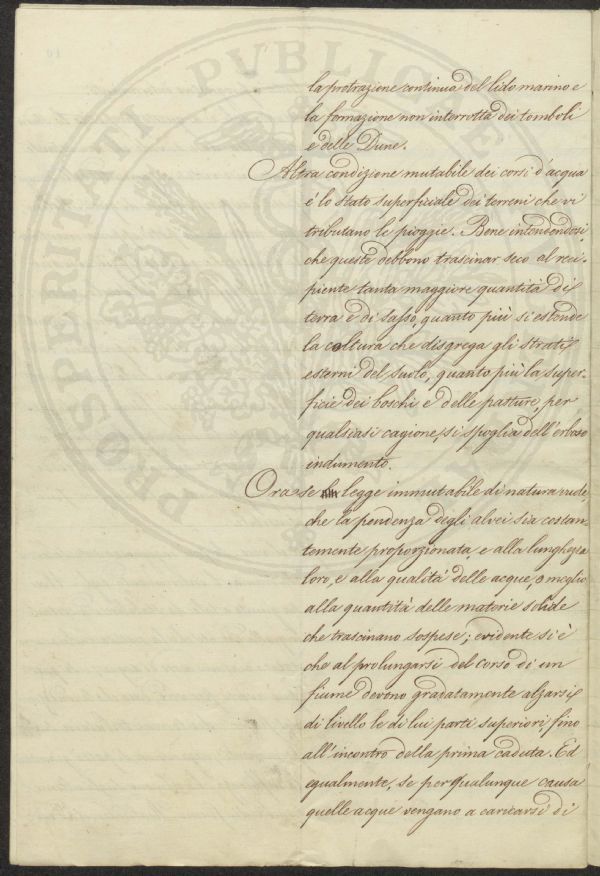 la protrazione continua del lido marino e
la formazione non interrotta dei tomboli
e delle Dune.
Altra condizione mutabile dei corsi d'acqua
é lo stato superficiale dei terreni che vi
tributano le pioggie. Bene intendendosi,
che queste debbono trascinar seco al reci-
piente tanta maggiore quantità di
terra e di sasso, quanto più si estende
la coltura che disgrega gli strati
esterni del suolo, quanto più la super-
ficie dei boschi e delle patture, per
qualsiasi cagione, si spoglia dell'erboso
indumento.
Ora se legge immutabile di natura vuole,
che la pendenza degli alvei sia costan-
temente proporzionata, e alla lunghezza
loro, e alla qualità delle acque, o meglio
alla quantità delle materie solide
che trascinano sospese; evidente si è
che al prolungarsi del corso di un
fiume devono gradatamente alzarsi
di livello le di lui parti superiori, fino
all'incontro della prima caduta. Ed
egualmente, se per qualunque causa
quelle acque vengano a caricarsi di
PROSPERITATI PVBLICAE